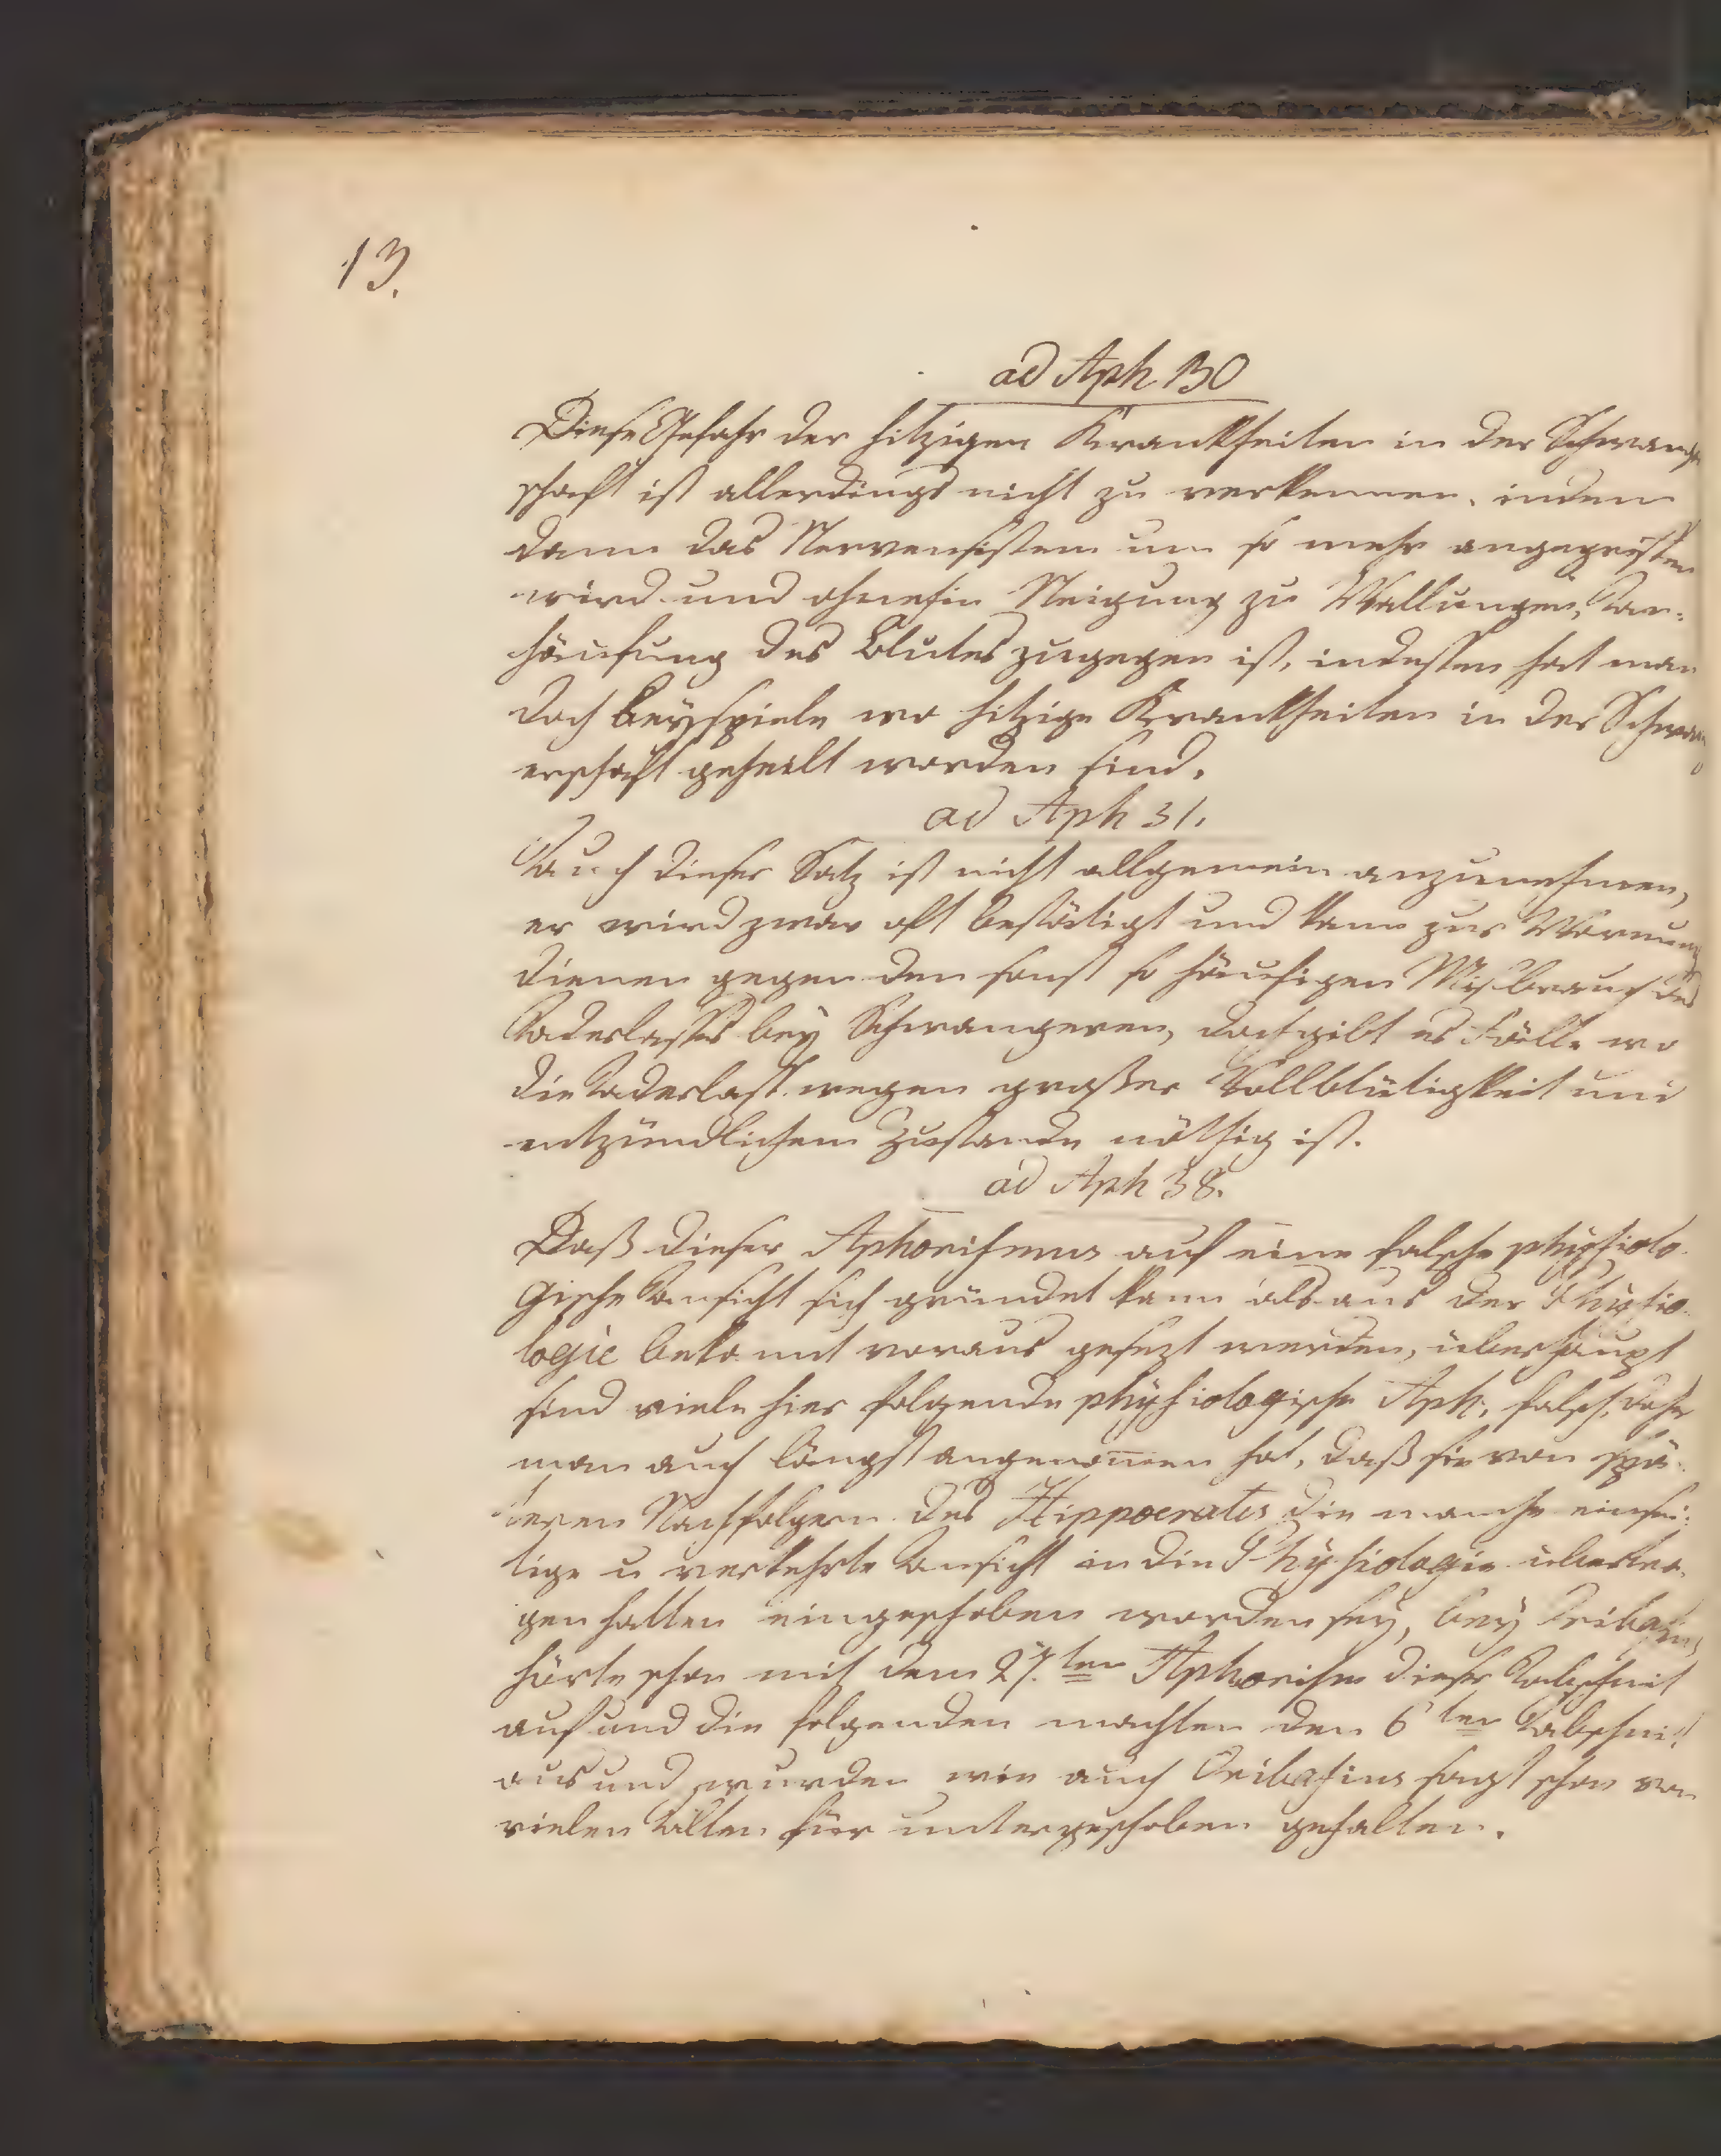 13.
ad Aph 30
Diese Gefahr der hitzigen Krankheiten in der Schwang
schaft ist allerdings nicht zu verkennen, indem
dann das Nervensistem um so mehr angegriffen
wird und ohnehin Neigung zu Wallungen, An-
häufung des Blutes zugegen ist, indessen hat man
doch Beyspiele wo hitzige Krankheiten in der Schwang
erschaft geheilt worden sind.
ad Aph 31.
Auch dieser Satz ist nicht allgemein anzunehmen,
er wird zwar oft bestätigt und kann zur Warnung
dienen gegen den sonst so häufigen Misbrauch des
Aderlasses bey Schwangeren, doch gibt es Fälle wo
die Aderlaß wegen großer Vollblütigkeit und
entzündlichem Zustande nöthig ist.
ad Aph 38.
Daß dieser Aphorismus auf eine falsche physiolo-
gische Ansicht sich gründet kann als aus der Physio-
logie bekannt voraus gesezt werden, überhaupt
sind viele hier folgende physiologische Aph. falsch, daher
man auch längst angenom̅en hat, daß sie von spä-
teren Nachfolgern des Hippocrates die manche einsei-
tige u verkehrte Ansicht in die Physiologie übertra-
gen hatten eingeschoben worden sey, bey Oribasius
hörte schon mit dem 27.ten Aphorism dieser Abschnit
auf und die folgenden machten den 6ten Abschnit
aus und wurden wie auch Oribasius sagt schon von
vielen Alten für untergeschoben gehalten.